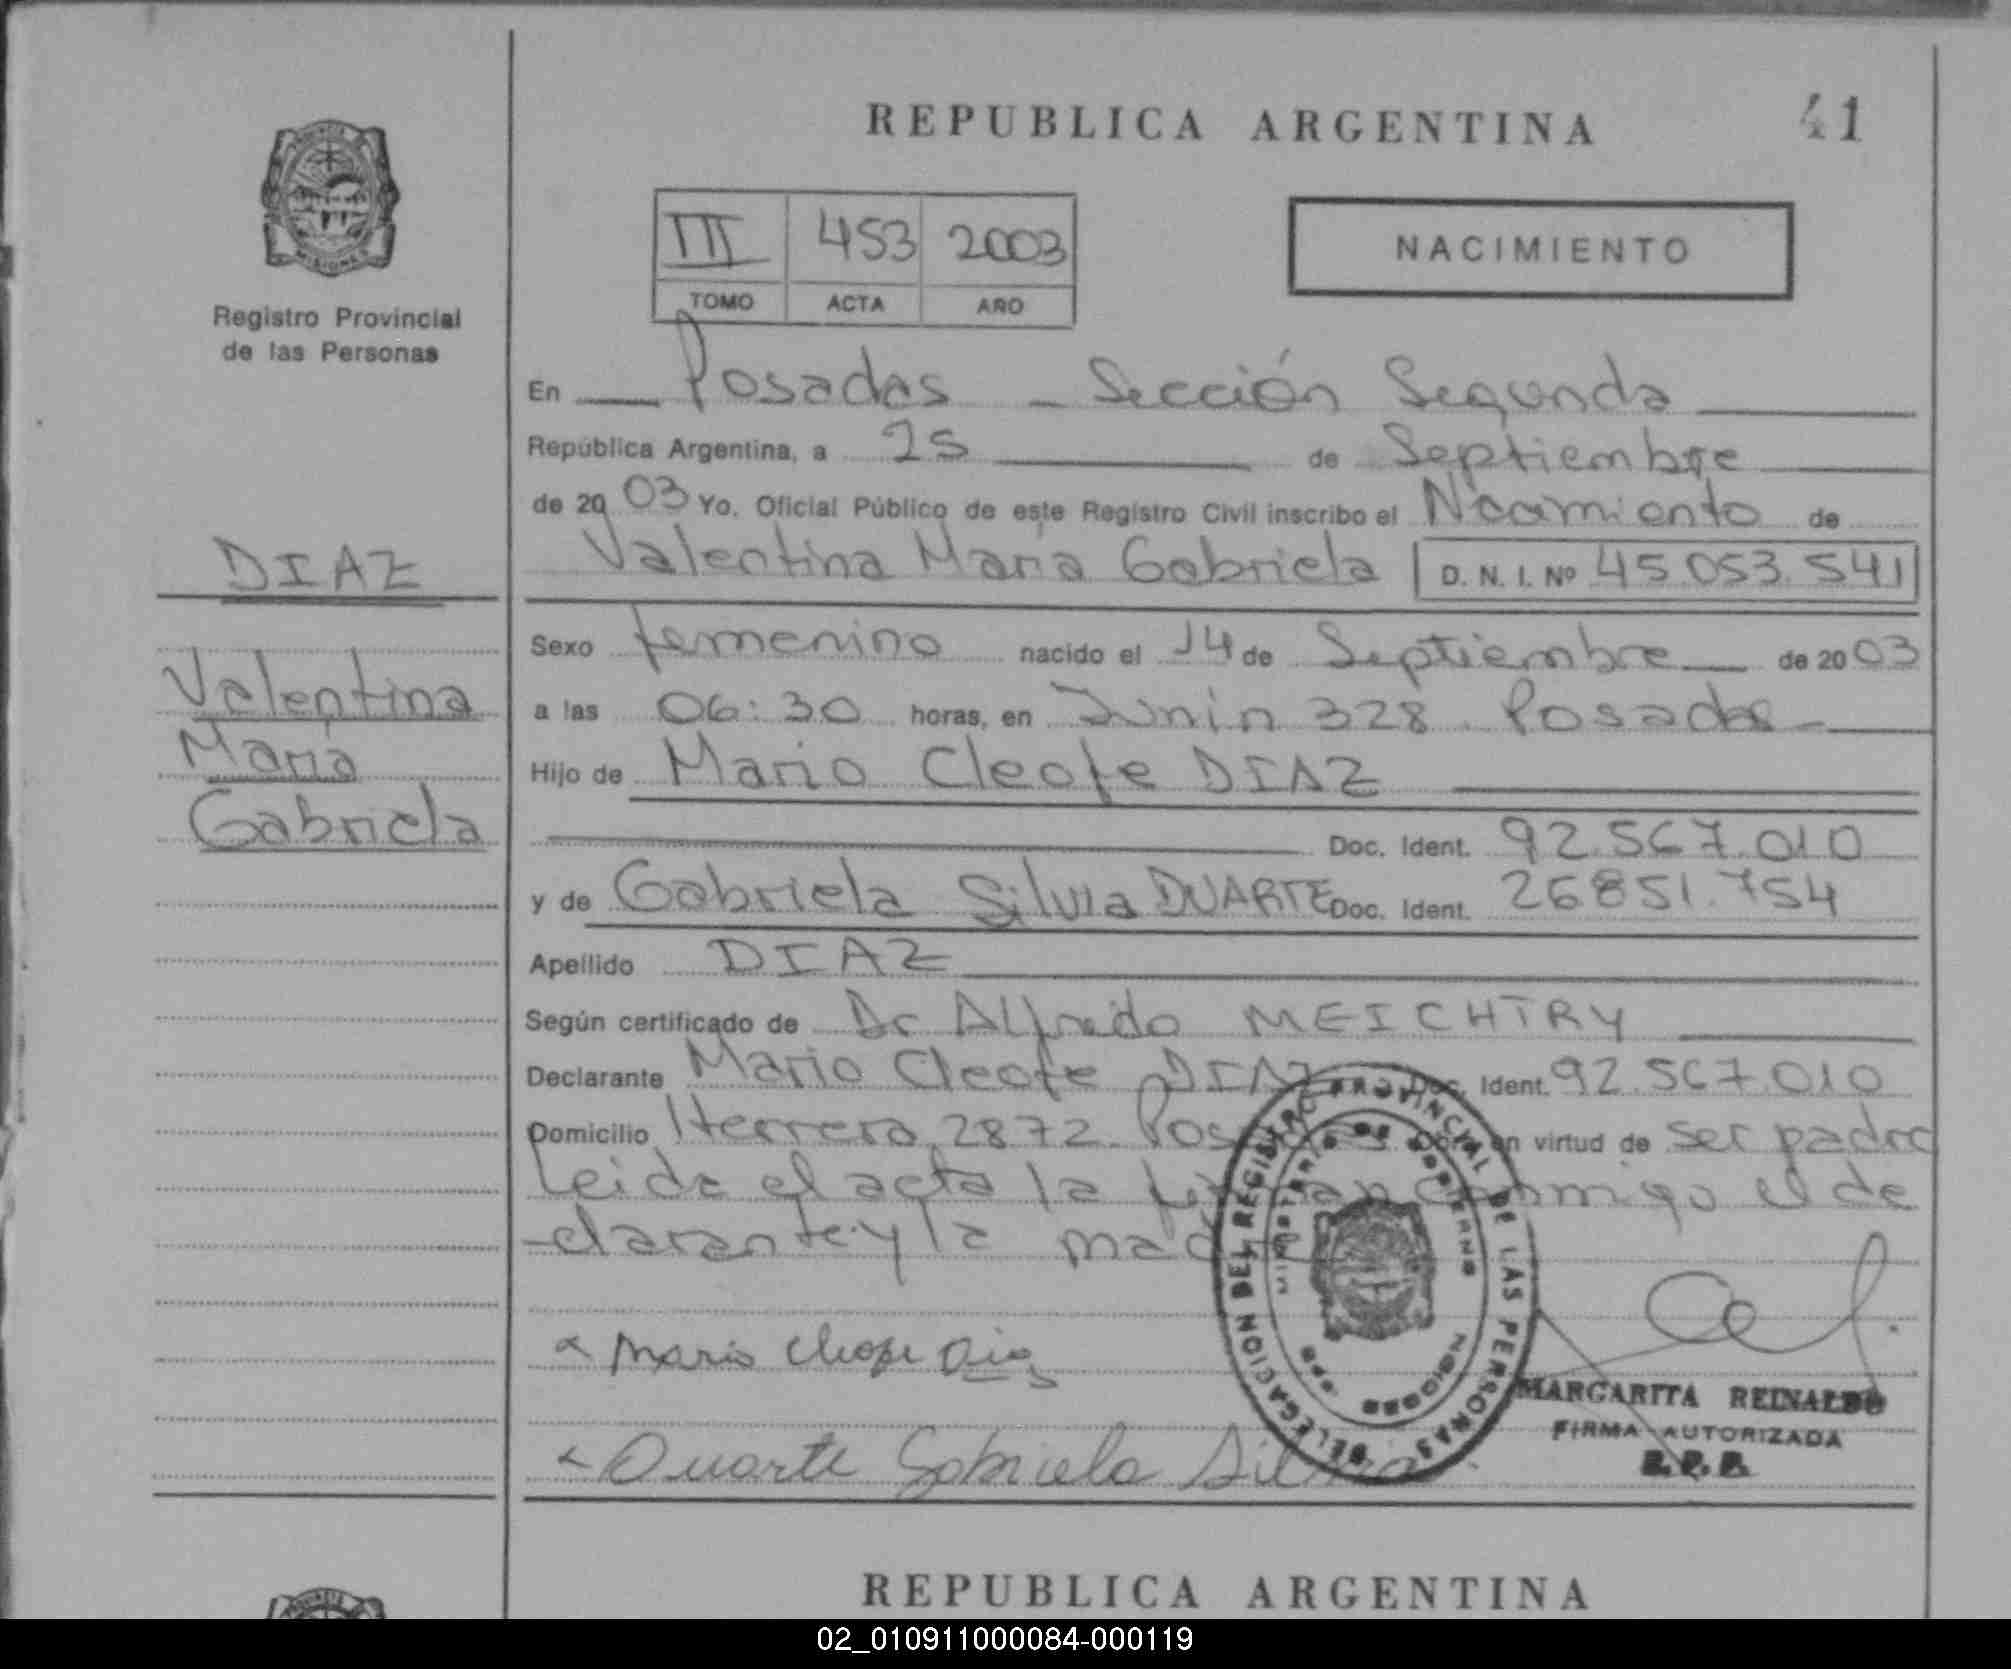 REPUBLICA ARGENTINA
41
MISIONES
Registro Provincial
de las Personas
III 453 2003
TOMO ACTA AÑO
NACIMIENTO
En Posadas - Sección Segunda
República Argentina, a 25 de Septiembre
de 2003 Yo. Oficial Público de este Registro Civil inscribo el Nacimiento de
Valentina Maria Gabriela D. N. I. Nº 45.053.541
DIAZ
Valentina
Maria
Gabriela
Sexo femenino nacido el 14 de Septiembre de 2003
a las 06:30 horas, en Junin 328 Posadas
Hijo de Mario Cleofe DIAZ
Doc. Ident. 92.567.010
y de Gabriela Silvia DUARTE Doc. Ident. 26851.754
Apellido DIAZ
Según certificado de Dr Alfredo MEICHTRY
Declarante Mario Cleofe DIAZ Doc. Ident. 92.567.010
Domicilio Herrera 2872 Posadas Obra en virtud de ser padre
Leida el acta la firman conmigo el de
clarante y la madre
x Mario Cleofe Diaz
x Duarte Gabriela Silvia
DELEGACION DEL REGISTRO PROVINCIAL DE LAS PERSONAS
MARGARITA REINALDO
FIRMA AUTORIZADA
R.P.P.
REPUBLICA ARGENTINA
02_010911000084-000119